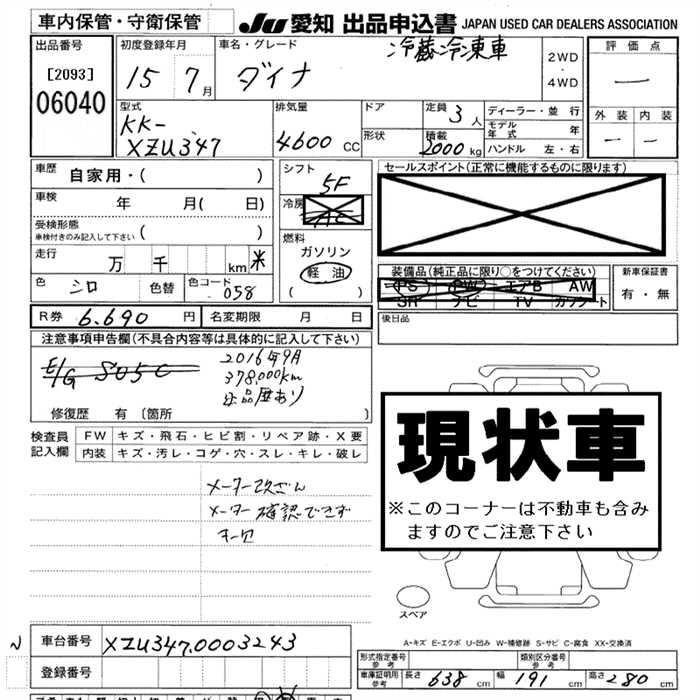 車内保管・守衛保管
JU 愛知 出品申込書 JAPAN USED CAR DEALERS ASSOCIATION
出品番号
[2093]
06040
初度登録年月
15 7月
車名・グレード
冷蔵冷凍車
ダイナ
2WD
・
4WD
評価点
―
外装 内装
― ―
型式
KK-
XZU347
排気量
4600 CC
ドア
形状
定員 3 人
積載
2000 kg
ディーラー・並行
モデル年式 年
ハンドル 左・右
車歴 自家用・( )
車検 年 月( 日)
受検形態
車検付きのみ記入して下さい ( )
走行 万 千 km 米
色 シロ 色替 色コード 058
シフト
5F
冷房
AC
燃料
ガソリン
軽油
( )
セールスポイント(正常に機能するものに限ります)
装備品(純正品に限り○をつけてください)
(PS) (PW) エアB AW
SR ナビ TV カワシート
新車保証書
有・無
R券 6,690 円 名変期限 月 日
後日品
注意事項申告欄(不具合内容等は具体的に記入して下さい)
E/G SU5C
2016年9月
378,000km
出品歴あり
修復歴 有〔箇所 〕
検査員
記入欄
FW キズ・飛石・ヒビ割・リペア跡・X要
内装 キズ・汚レ・コゲ・穴・スレ・キレ・破レ
メーター改ざん
メーター確認できず
キー欠
現状車
※このコーナーは不動車も含み
ますのでご注意下さい
スペア
A-キズ E-エクボ U-凹み W-補修跡 S-サビ C-腐食 XX-交換済
N 車台番号 XZU347.0003243
登録番号
形式指定番号
参考
類別区分番号
参考
車庫証明用
参考
長さ 638 cm 幅 191 cm 高さ 280 cm